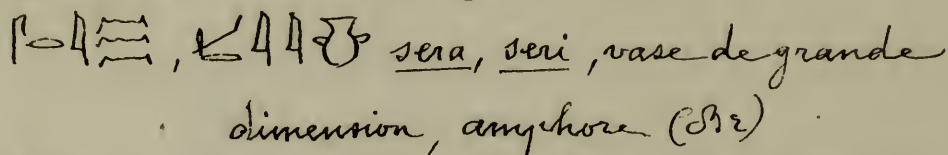 𓋴𓂋𓇋𓈗, 𓇋𓇋 sera, seri, vase de grande
dimension, amphore